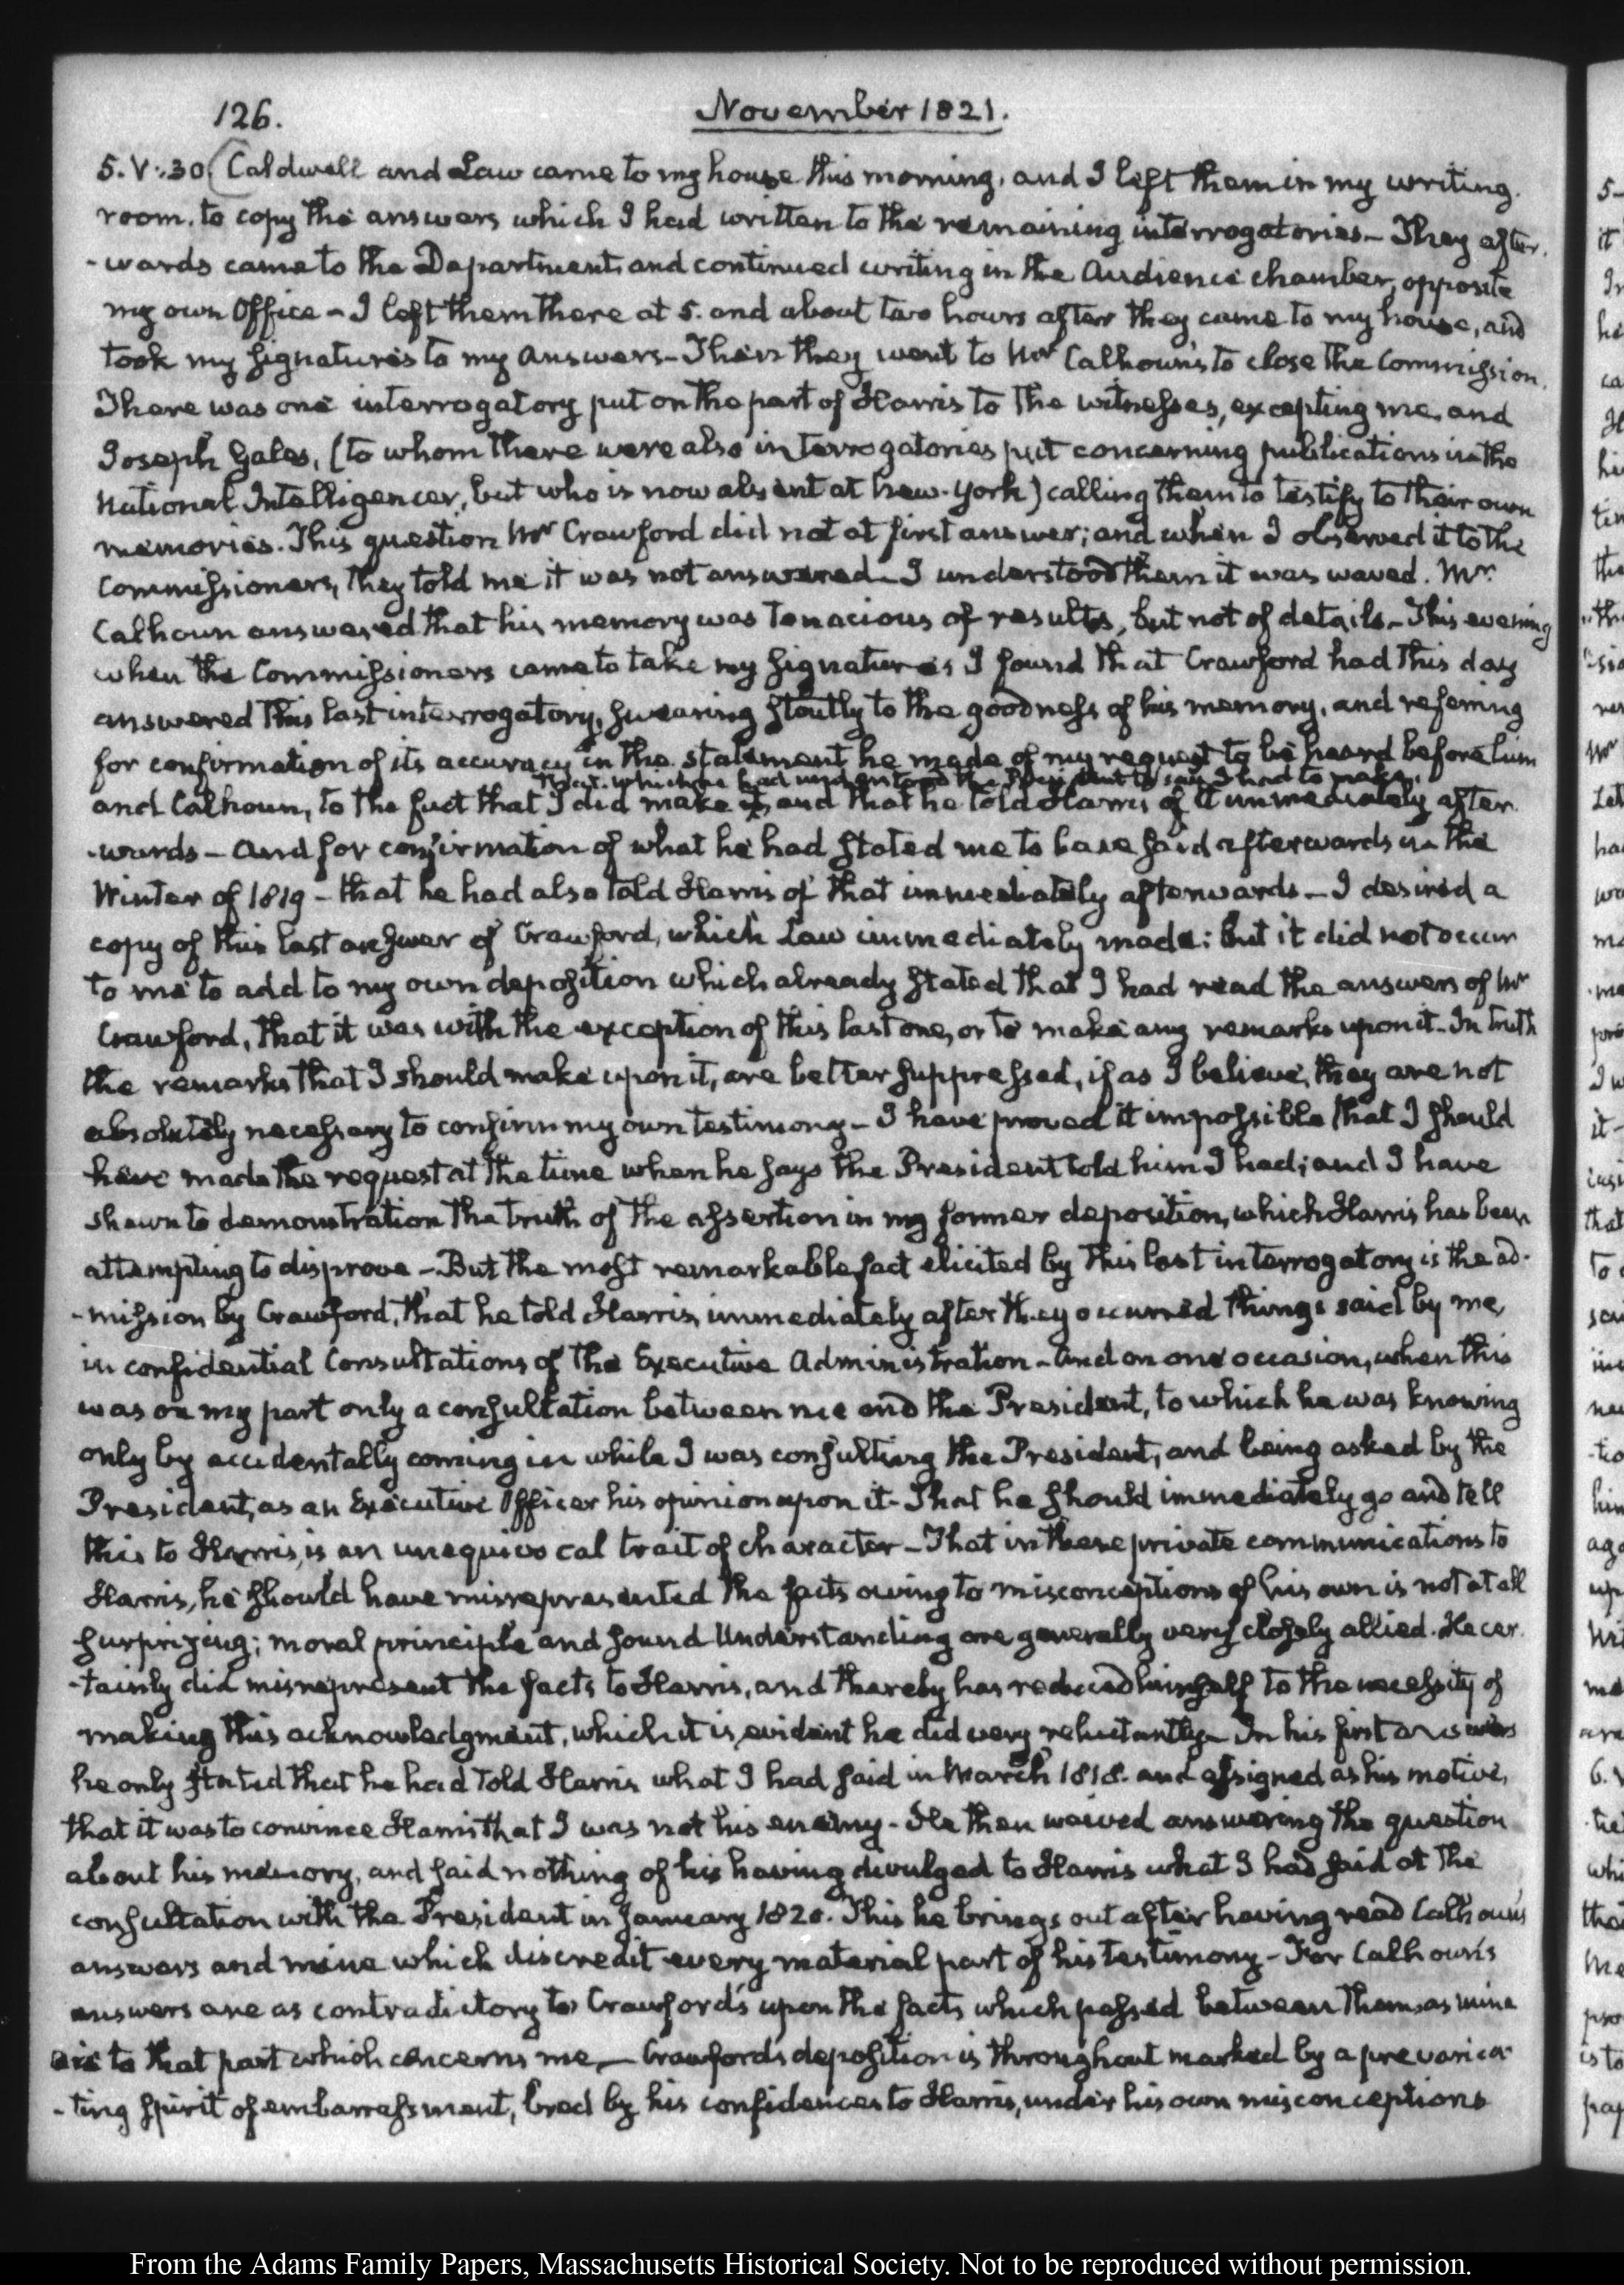 126.
November 1821.
5. V:30. Caldwell and Law came to my house this morning, and I left them in my writing
room, to copy the answers which I had written to the remaining interrogatories — They after-
-wards came to the Department and continued writing in the Audience chamber, opposite
my own Office — I left them there at 5. and about two hours after they came to my house, and
took my signatures to my answers — Then they went to Mr Calhoun's to close the Commission.
There was one interrogatory put on the part of Harris to the witnesses, excepting me, and
Joseph Gales, (to whom there were also interrogatories put concerning publications in the
National Intelligencer, but who is now absent at New-York) calling them to testify to their own
memories. This question Mr Crawford did not at first answer; and when I observed it to the
Commissioners, they told me it was not answered — I understood them it was waved. Mr
Calhoun answered that his memory was tenacious of results, but not of details — This evening
when the Commissioners came to take my signatures I found that Crawford had this day
answered this last interrogatory, swearing stoutly to the goodness of his memory, and referring
for confirmation of its accuracy in the statement he made of my request to be heard before him
that which he had understood the President to say I had to make.
and Calhoun, to the fact that I did make it, and that he told Harris of it immediately after-
-wards — And for confirmation of what he had stated me to have said afterwards in the
Winter of 1819 — that he had also told Harris of that immediately afterwards — I desired a
copy of this last answer of Crawford, which Law immediately made: but it did not occur
to me to add to my own deposition which already stated that I had read the answers of Mr
Crawford, that it was with the exception of this last one, or to make any remarks upon it — In truth
the remarks that I should make upon it, are better suppressed, if as I believe, they are not
absolutely necessary to confirm my own testimony — I have proved it impossible that I should
have made the request at the time when he says the President told him I had; and I have
shewn to demonstration the truth of the assertion in my former deposition, which Harris has been
attempting to disprove — But the most remarkable fact elicited by this last interrogatory is the ad-
-mission by Crawford, that he told Harris, immediately after they occurred things said by me,
in confidential Consultations of the Executive Administration — And on one occasion, when this
was on my part only a consultation between me and the President, to which he was knowing
only by accidentally coming in while I was consulting the President, and being asked by the
President, as an Executive Officer his opinion upon it — That he should immediately go and tell
this to Harris, is an unequivocal trait of character — That in these private communications to
Harris, he should have misrepresented the facts owing to misconceptions of his own is not at all
surprizing; moral principle and sound Understanding are generally very closely allied. He cer-
-tainly did misrepresent the facts to Harris, and thereby has reduced himself to the necessity of
making this acknowledgment, which it is evident he did very reluctantly — In his first answers
he only stated that he had told Harris what I had said in March 1818. and assigned as his motive,
that it was to convince Harris that I was not his enemy — He then waived answering the question
about his memory, and said nothing of his having divulged to Harris what I had said at the
consultation with the President in January 1820. This he brings out after having read Calhoun's
answers and mine which discredit every material part of his testimony — For Calhoun's
answers are as contradictory to Crawford's upon the facts which passed between them, as mine
are to that part which concerns me — Crawford's deposition is throughout marked by a prevarica-
-ting spirit of embarrassment, bred by his confidences to Harris, under his own misconceptions
From the Adams Family Papers, Massachusetts Historical Society. Not to be reproduced without permission.